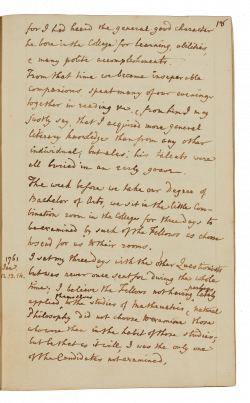 18
for I had heard the general good character
he bore in the College for learning, abilities
& many polite accomplishments.
From that time we became inseperable
companions spent many of our evenings
together in reading &c, & from him I may
justly say, that I acquired more general
literary knowledge than from any other
individual; but alas! his talents were
all buried in an early grave.
The week before we take our degree of
Bachelor of Arts, we sit in the little Com-
bination room in the College for three days to
be examined by such of the Fellows as choose
to send for us to their rooms.
1761
Jan.
12. 13. 14.
I sat my three days with the other Questionists
but was never once sent for during the whole
time; I believe the Fellows not having lately
perhaps
applied themselves to the studies of Mathematics, & natural
Philosophy did not choose to examine those
who were then in the habit of those studies;
but be that as it will, I was the only one
of the Candidates not examined.